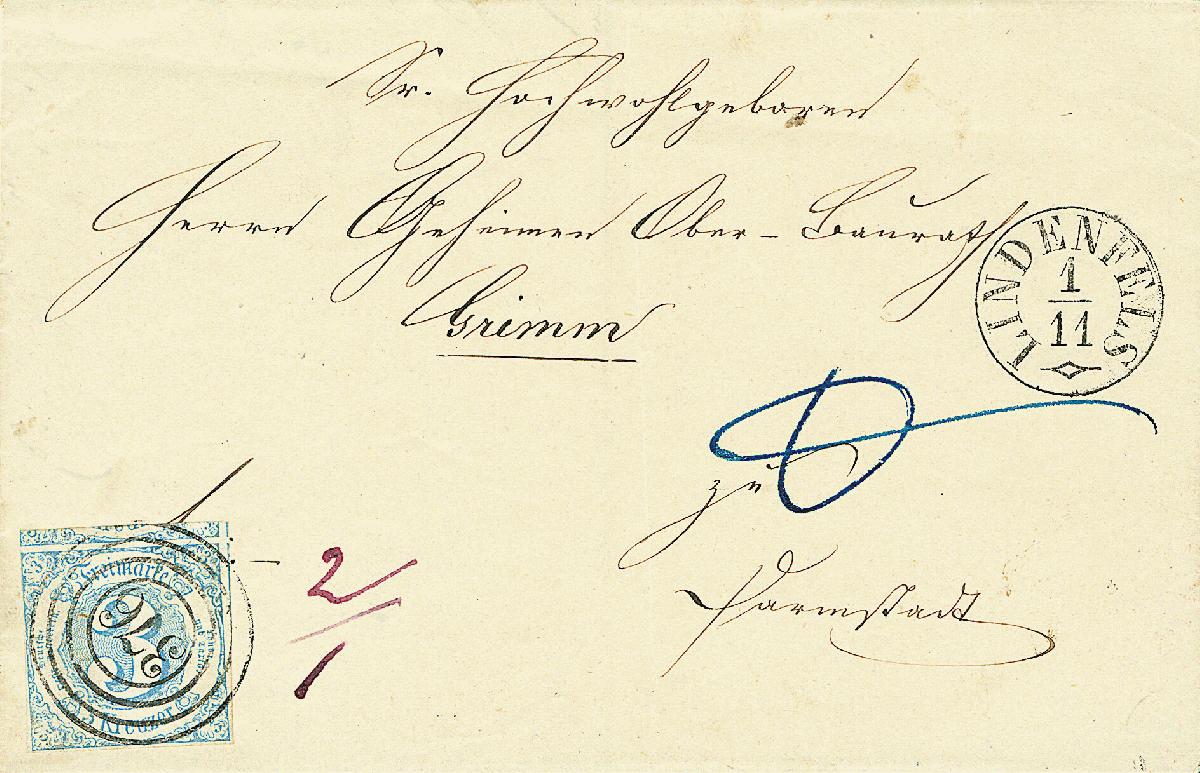 Sr. Hochwohlgeboren
Herrn Geheimen Ober-Baurath
Grimm
LINDENFELS
1
11
zu
Darmstadt
2
1
Freimarke
3
Kreuzer
376